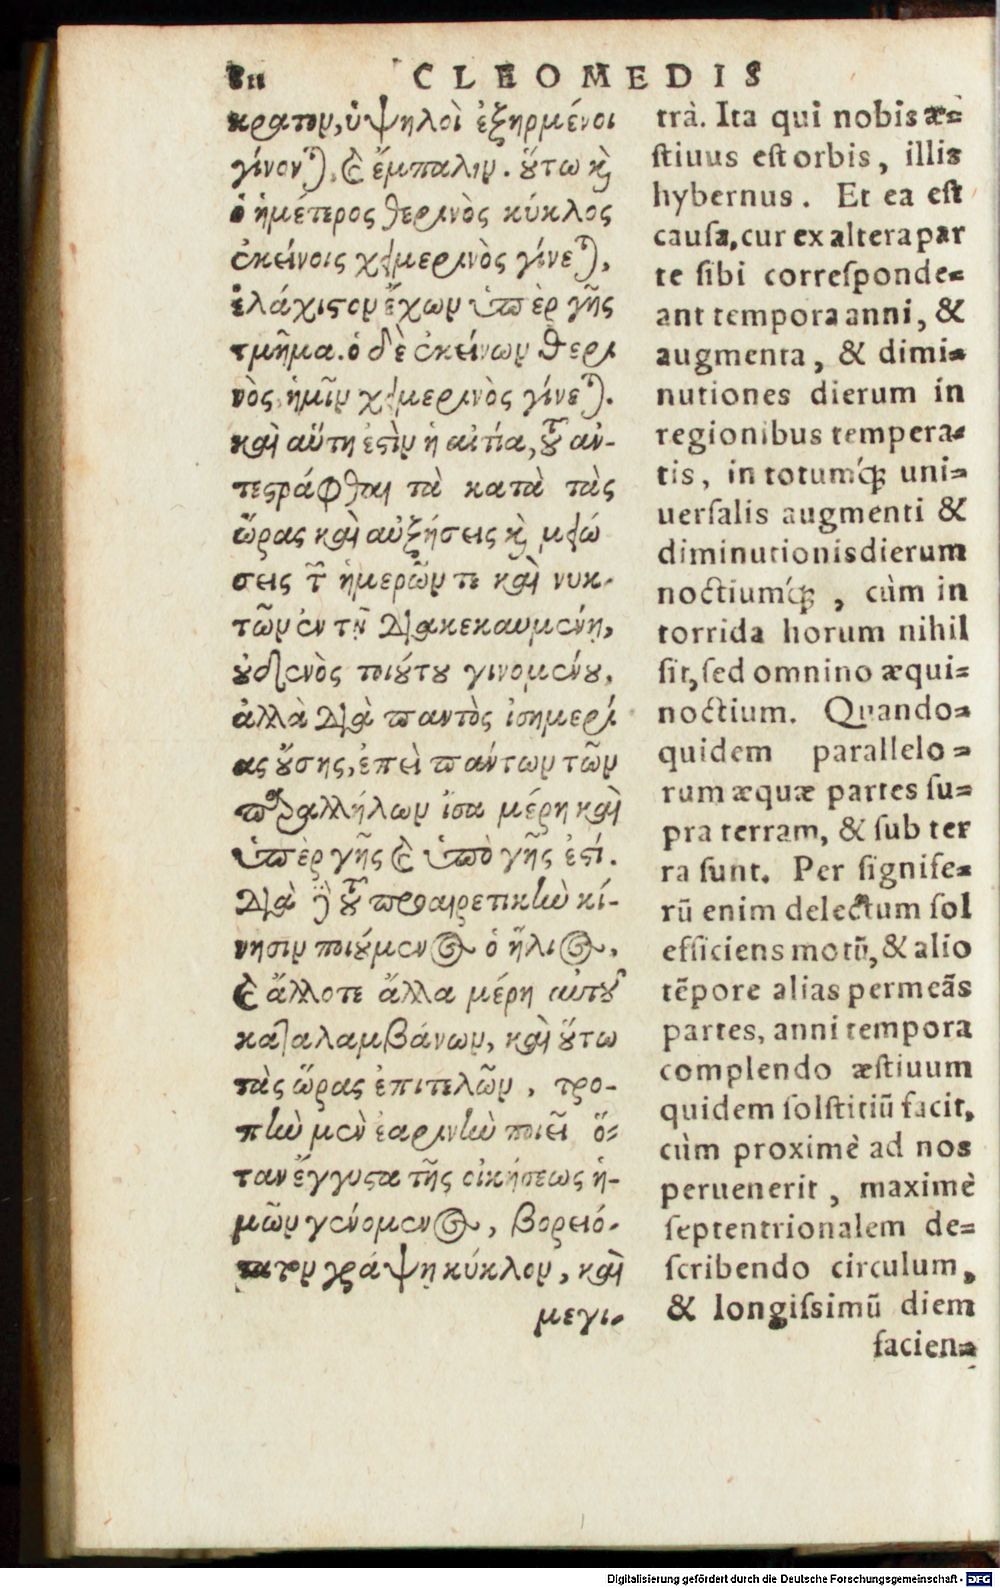 CLEOMEDIS
κρατον, ὑψηλοὶ ἐξηρμένοι
γίνον), ϗ ἔμπαλιν. ὅτω ϗ
ὁ ἡμέτερος θερινὸς κύκλος
ἐκείνοις χειμερινὸς γίνε),
ἐλάχιστον ἔχων ὑπὲρ γῆς
τμῆμα. ὁ δὲ ἐκείνων θερι
νὸς ἡμῖν χειμερινὸς γίνε).
καὶ αὕτη ἐστὶν ἡ αἰτία, τοῦ ἀν-
τεστράφθαι τὰ κατὰ τὰς
ὥρας καὶ αὐξήσεις ϗ μειώ
σεις τ̃ ἡμερῶν τε καὶ νυκ-
τῶν ἐν τῇ διακεκαυμένῃ,
ȣ̓δενὸς τοιȣ́τȣ γινομένȣ,
ἀλλὰ διὰ παντὸς ἰσημερί
ας ȣ̓́σης, ἐπεὶ πάντων τῶν
παραλλήλων ἴσα μέρη καὶ
ὑπὲρ γῆς ϗ ὑπὸ γῆς ἐστί.
διὰ γὸ τοῦ προαιρετικὴν κί-
νησιν ποιȣ́μενος ὁ ἥλιος,
ϗ ἄλλοτε ἄλλα μέρη αὐτȣ͂
καταλαμβάνων, καὶ ȣ̔́τω
τὰς ὥρας ἐπιτελῶν, τρο-
πὴν μὲν ἐαρινὴν ποιεῖ ὅ-
ταν ἔγγυστα τῆς οἰκήσεως ἡ-
μῶν γενόμενος, βορειό-
τατον γράψῃ κύκλον, καὶ
μεγι-
trà. Ita qui nobis æ=
ſtiuus eſt orbis, illis
hybernus. Et ea eſt
cauſa, cur ex altera par
te ſibi correſponde=
ant tempora anni, &
augmenta, & dimi=
nutiones dierum in
regionibus tempera=
tis, in totumq́; uni=
uerſalis augmenti &
diminutionis dierum
noctiumq́;, cùm in
torrida horum nihil
ſit, ſed omnino æqui=
noctium. Quando=
quidem parallelo=
rum æquæ partes ſu=
pra terram, & ſub ter
ra ſunt. Per ſignife=
rū enim delectum ſol
efficiens motū, & alio
tēpore alias permeās
partes, anni tempora
complendo æſtiuum
quidem ſolſtitiū facit,
cùm proximè ad nos
peruenerit, maximè
ſeptentrionalem de=
ſcribendo circulum,
& longiſsimū diem
facien=
Digitalisierung gefördert durch die Deutsche Forschungsgemeinschaft - DFG